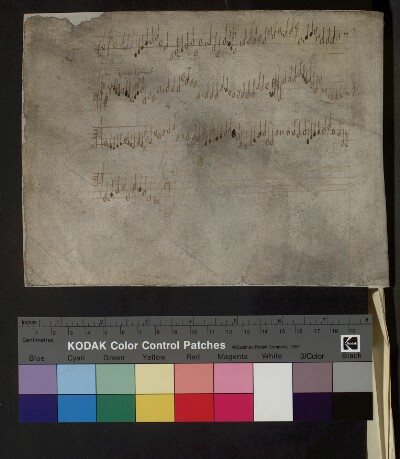 Inches 1 2 3 4 5 6 7 8
Centimetres 1 2 3 4 5 6 7 8 9 10 11 12 13 14 15 16 17 18 19
KODAK Color Control Patches
Blue Cyan Green Yellow Red Magenta White 3/Color Black
Kodak